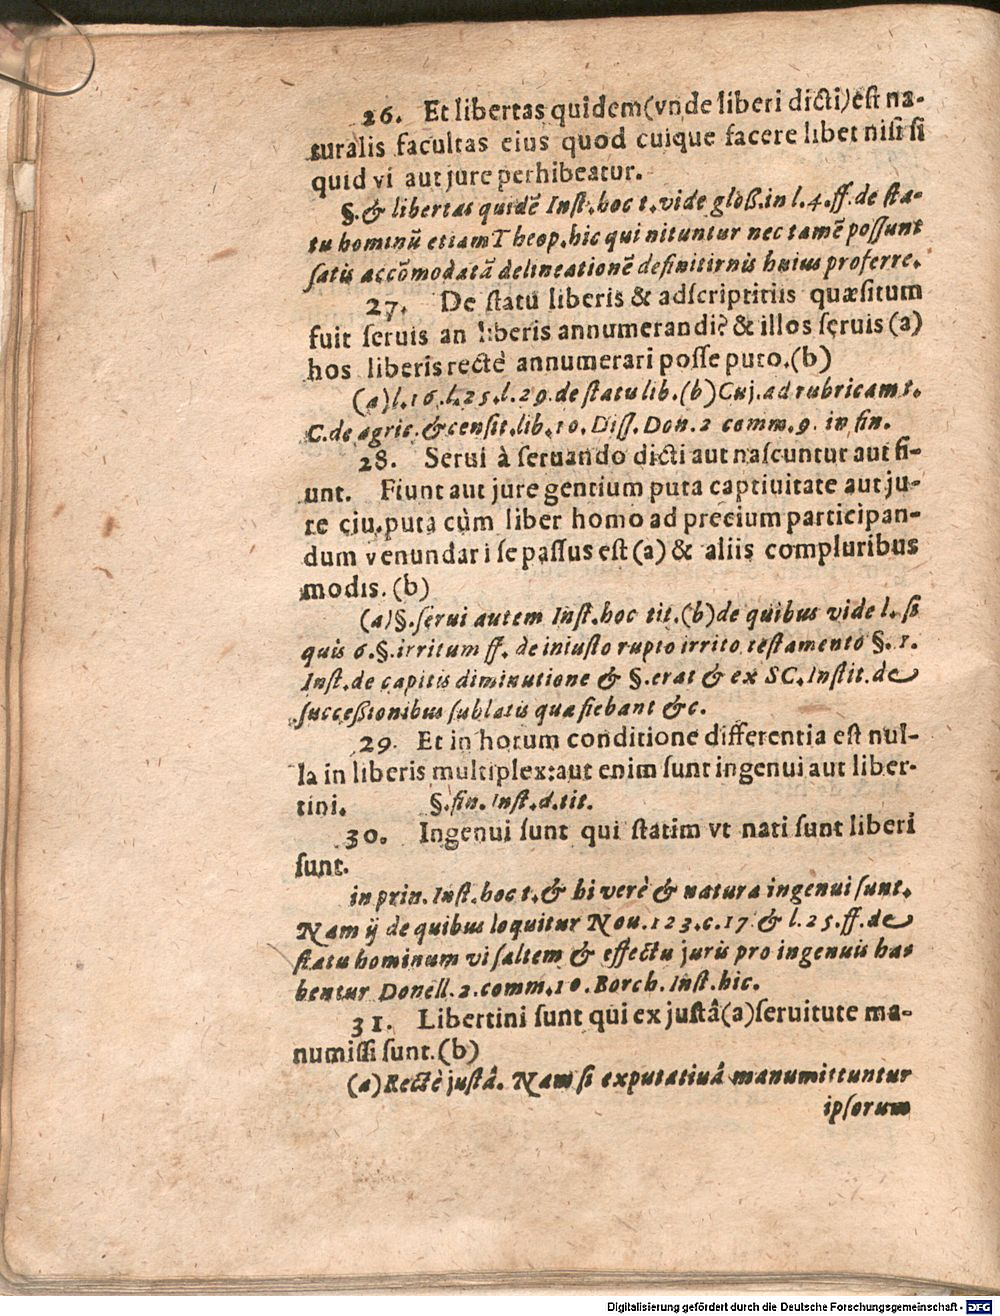 26. Et libertas quidem (vnde liberi dicti) est na-
turalis facultas eius quod cuique facere libet nisi si
quid vi aut jure perhibeatur.
§. & libertas quidē Inst. hoc t. vide gloß. in l. 4. ff. de sta-
tu hominū etiam Theop. hic qui nituntur nec tamē possunt
satis accōmodatā delineationē definitirnis huius proferre.
27. De statu liberis & adscriptitiis quæsitum
fuit seruis an liberis annumerandi? & illos seruis (a)
hos liberis rectè annumerari posse puto. (b)
(a) l. 16. l. 25. l. 29. de statu lib. (b) Cuj. ad rubricam t.
C. de agric. & censit. lib. 10. Diss. Don. 2 comm. 9. in fin.
28. Serui à seruando dicti aut nascuntur aut fi-
unt. Fiunt aut jure gentium puta captiuitate aut ju-
re ciu. puta cùm liber homo ad precium participan-
dum venundari se passus est (a) & aliis compluribus
modis. (b)
(a) §. serui autem Inst. hoc tit. (b) de quibus vide l. si
quis 6. §. irritum ff. de iniusto rupto irrito testamento §. 1.
Inst. de capitis diminutione & §. erat & ex SC. Instit. de
succeßionibus sublatis quæ fiebant &c.
29. Et in horum conditione differentia est nul-
la in liberis multiplex: aut enim sunt ingenui aut liber-
tini. §. fin. Inst. d. tit.
30. Ingenui sunt qui statim vt nati sunt liberi
sunt.
in prin. Inst. hoc t. & hi verè & natura ingenui sunt.
Nam ij de quibus loquitur Nou. 123. c. 17 & l. 25. ff. de
statu hominum vi saltem & effectu juris pro ingenuis ha-
bentur Donell. 2. comm. 10. Borch. Inst. hic.
31. Libertini sunt qui ex justâ (a) seruitute ma-
numissi sunt. (b)
(a) Rectè justâ. Nam si ex putatiuâ manumittuntur
ipsorum
Digitalisierung gefördert durch die Deutsche Forschungsgemeinschaft - DFG